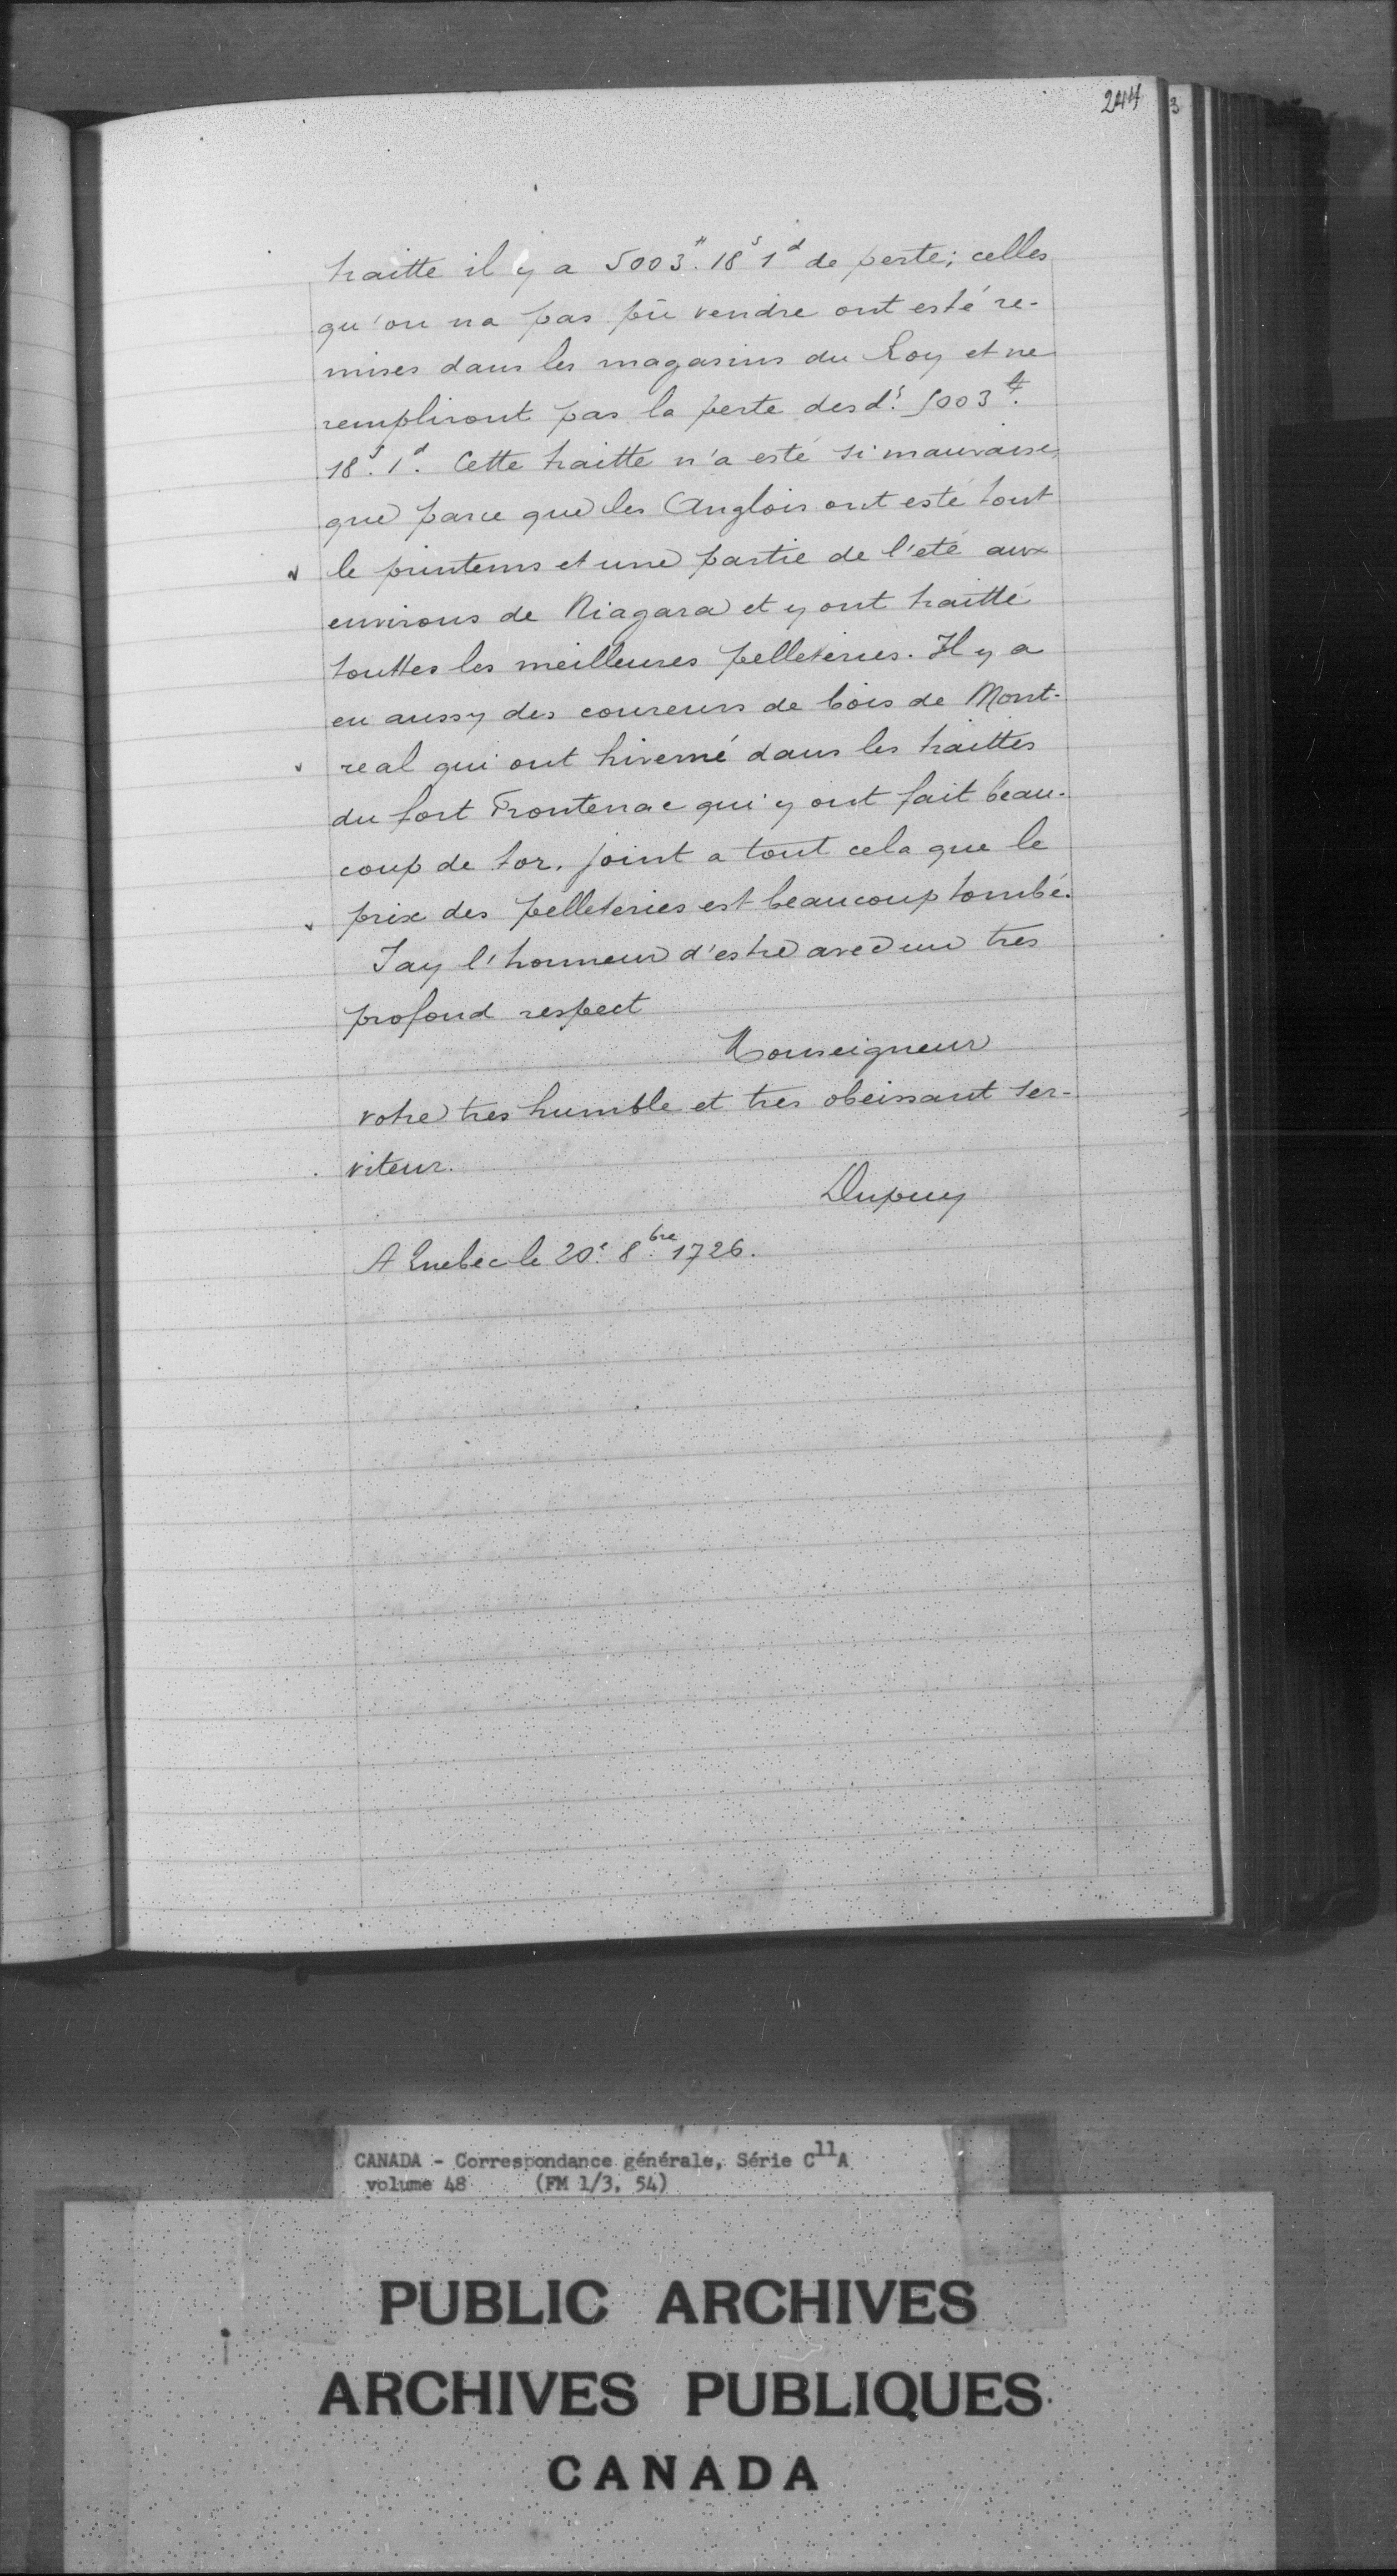 244
3
traitte il y a 5003ᵗᵗ. 18ˢ 1ᵈ de perte; celles
qu'on na pas pû vendre ont esté re-
mises dans les magasins du Roy et ne
rempliront pas la perte desd.ˢ 5003ᵗᵗ.
18ˢ. 1ᵈ. Cette traitte n'a esté si mauvaise,
que parce que les Anglois ont esté tout
le printems et une partie de l'eté aux
environs de Niagara et y ont traitté
touttes les meilleures pelleteries. Il y a
eu aussy des coureurs de bois de Mont-
real qui ont hiverné dans les traittes
du fort Frontenac qui y ont fait beau-
coup de tor. joint a tout cela que le
prix des pelleteries est beaucoup tombé.
Jay l'honneur d'estre avec un tres
profond respect
Monseigneur
votre tres humble et tres obeissant ser-
viteur.
Dupuy
A Quebec le 20ᵉ. 8.ᵇʳᵉ 1726.
CANADA - Correspondance générale, Série C¹¹A
volume 48 (FM 1/3, 54)
PUBLIC ARCHIVES
ARCHIVES PUBLIQUES
CANADA